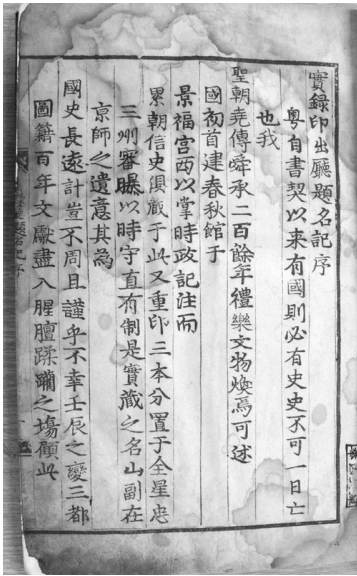 實錄印出廳題名記序
粤自書契以来有國則必有史史不可一日亡
也我
聖朝堯傳舜承二百餘年禮樂文物煥焉可述
國初首建春秋館于
景福宮西以掌時政記注而
累朝信史俱藏于此又重印三本分置于全星忠
三州審曝以時守直有制是實藏之名山副在
京師之遺意其為
國史長遠計豈不周且謹乎不幸壬辰之變三都
圖籍百年文獻盡入腥膻蹂躪之場顧此